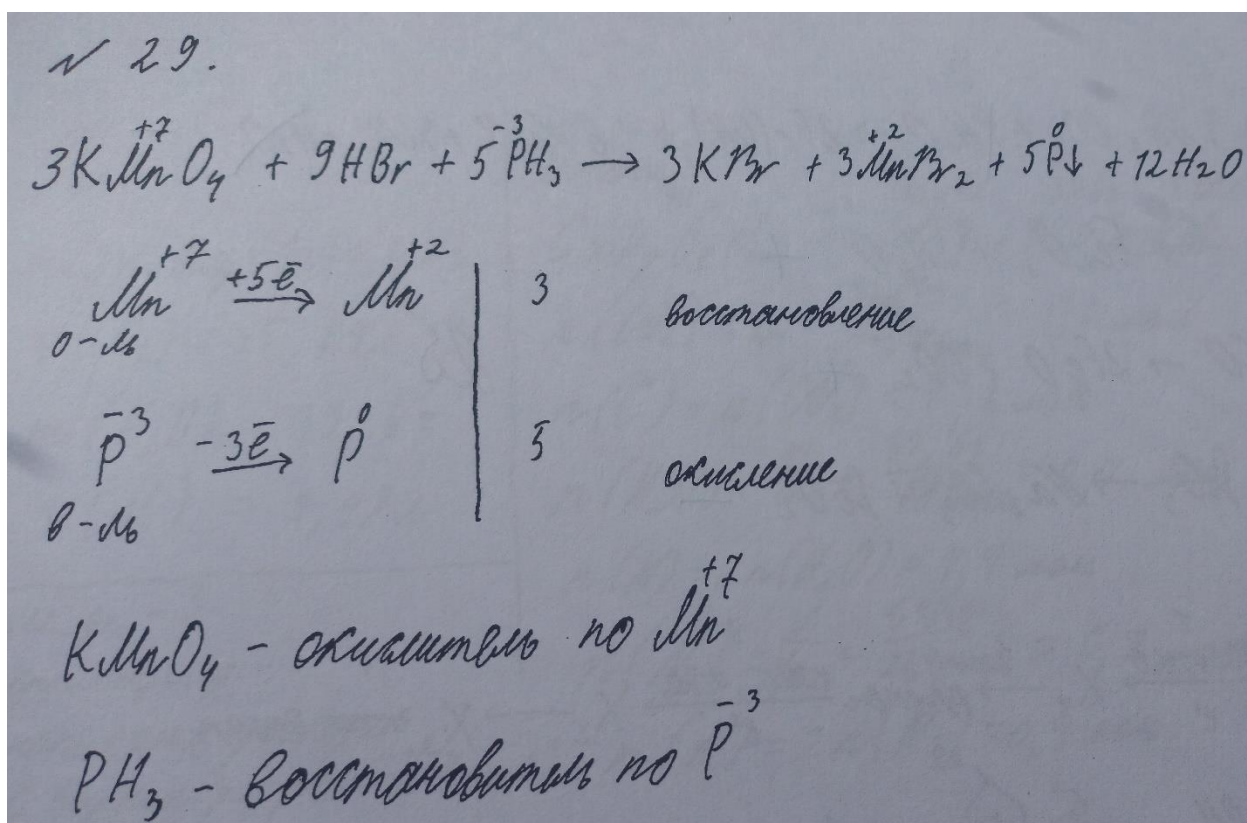 № 29.
3KMn⁺⁷O₄ + 9HBr + 5P⁻³H₃ → 3KBr + 3Mn⁺²Br₂ + 5P⁰↓ + 12H₂O
Mn⁺⁷ +5ē → Mn⁺² | 3 восстановление
о-ль
P⁻³ -3ē → P⁰ | 5 окисление
в-ль
KMnO₄ - окислитель по Mn⁺⁷
PH₃ - восстановитель по P⁻³